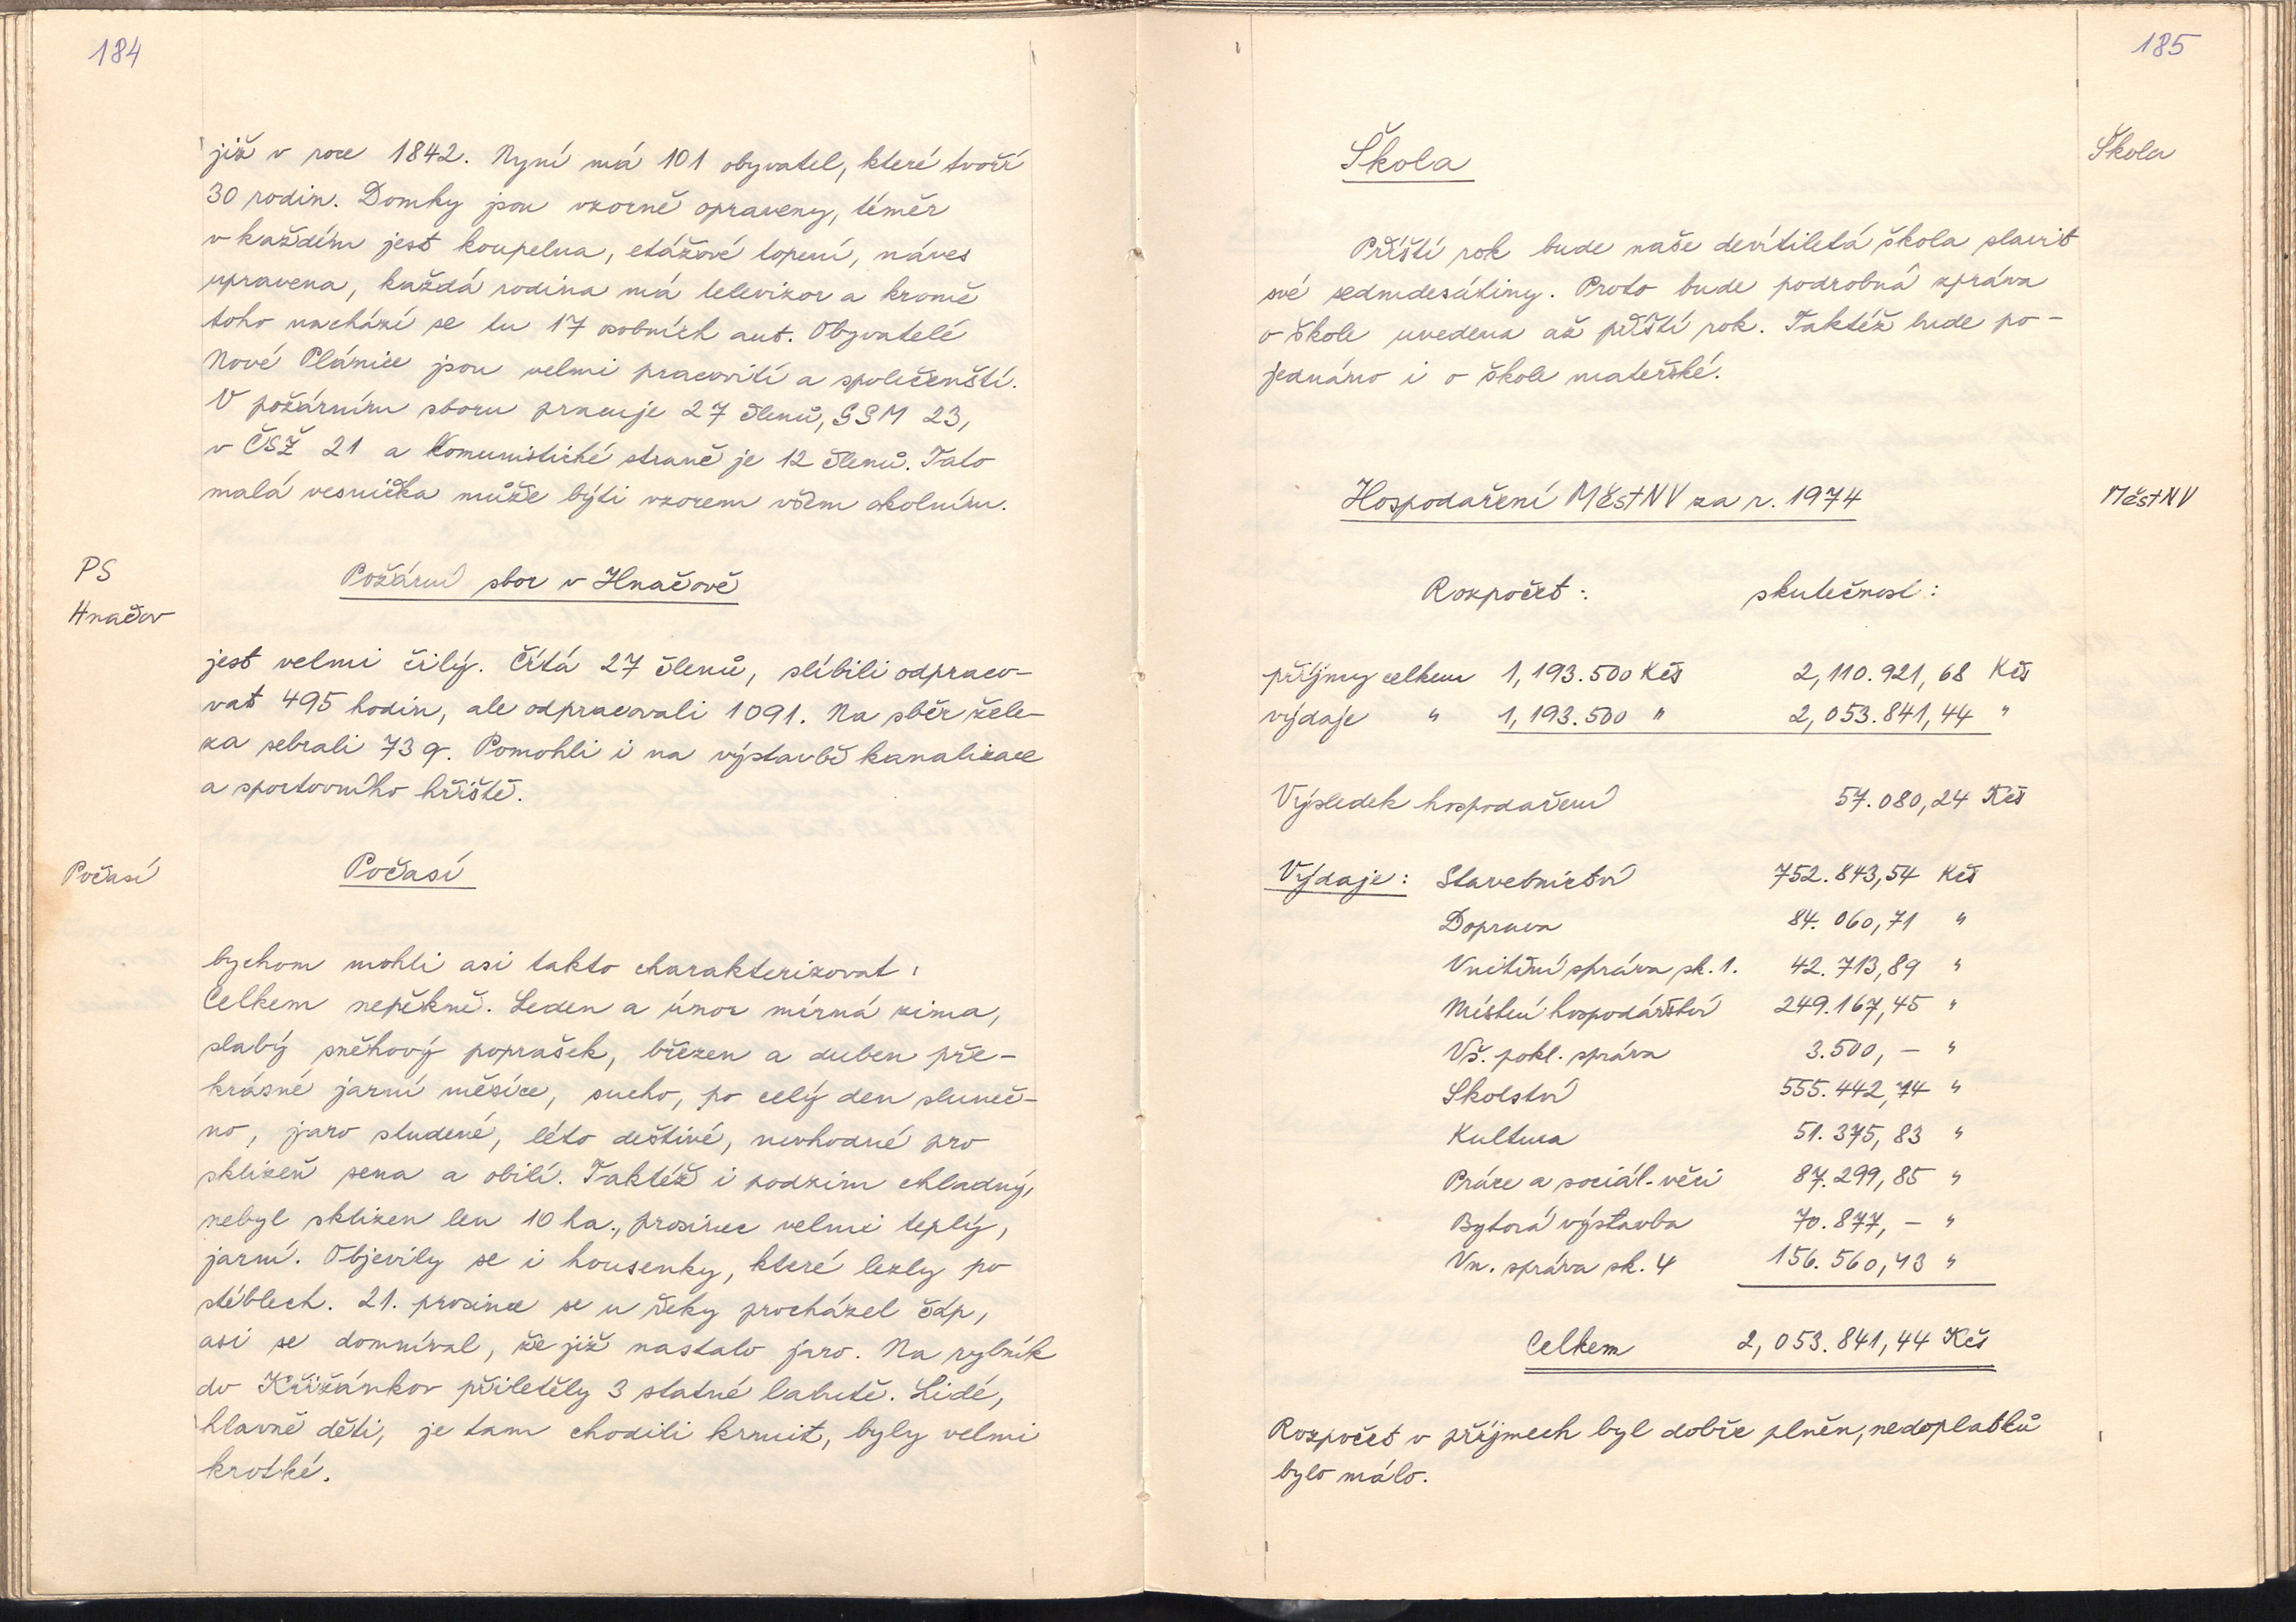 184
již v roce 1842. Nyní má 101 obyvatel, které tvoří
30 rodin. Domky jsou vzorně opraveny, téměř
v každém jest koupelna, etážové topení, náves
upravena, každá rodina má televizor a kromě
toho nachází se tu 17 osobních aut. Obyvatelé
Nové Plánice jsou velmi pracovití a společenští.
V požárním sboru pracuje 27 členů, SSM 23,
v ČSŽ 21 a Komunistické straně je 12 členů. Tato
malá vesnička může býti vzorem všem okolním.
PS
Hnačov
Požární sbor v Hnačově
jest velmi čilý. Čítá 27 členů, slíbili odpraco-
vat 495 hodin, ale odpracovali 1091. Na sběr žele-
za sebrali 73 q. Pomohli i na výstavbě kanalizace
a sportovního hřiště.
Počasí
Počasí
bychom mohli asi takto charakterizovat:
Celkem nepěkně. Leden a únor mírná zima,
slabý sněhový poprašek, březen a duben pře-
krásné jarní měsíce, sucho, po celý den sluneč-
no, jaro studené, léto deštivé, nevhodné pro
sklizeň sena a obilí. Taktéž i podzim chladný,
nebyl sklizen len 10 ha., prosinec velmi teplý,
jarní. Objevily se i housenky, které lezly po
stéblech. 21. prosince se u řeky procházel čáp,
asi se domníval, že již nastalo jaro. Na rybník
do Křižánkov přiletěly 3 statné labutě. Lidé,
hlavně děti, je tam chodili krmit, byly velmi
krotké.
185
Škola
Škola
Příští rok bude naše devítiletá škola slavit
své sedmdesátiny. Proto bude podrobná zpráva
o škole uvedena až příští rok. Taktéž bude po-
jednáno i o škole mateřské.
Hospodaření MěstNV za r. 1974
MěstNV
Rozpočet: skutečnost:
příjmy celkem 1,193.500 Kčs 2,110.921,68 Kčs
výdaje " 1,193.500 " 2,053.841,44 "
Výsledek hospodaření 57.080,24 Kčs
Výdaje: Stavebnictví 752.843,54 Kčs
Doprava 84.060,71 "
Vnitřní správa sk. 1. 42.713,89 "
Místní hospodářství 249.167,45 "
Vš. pokl. správa 3.500,- "
Školství 555.442,74 "
Kultura 51.375,83 "
Práce a sociál. věci 87.299,85 "
Bytová výstavba 70.877,- "
Vn. správa sk. 4 156.560,43 "
Celkem 2,053.841,44 Kčs
Rozpočet v příjmech byl dobře plněn, nedoplatků
bylo málo.